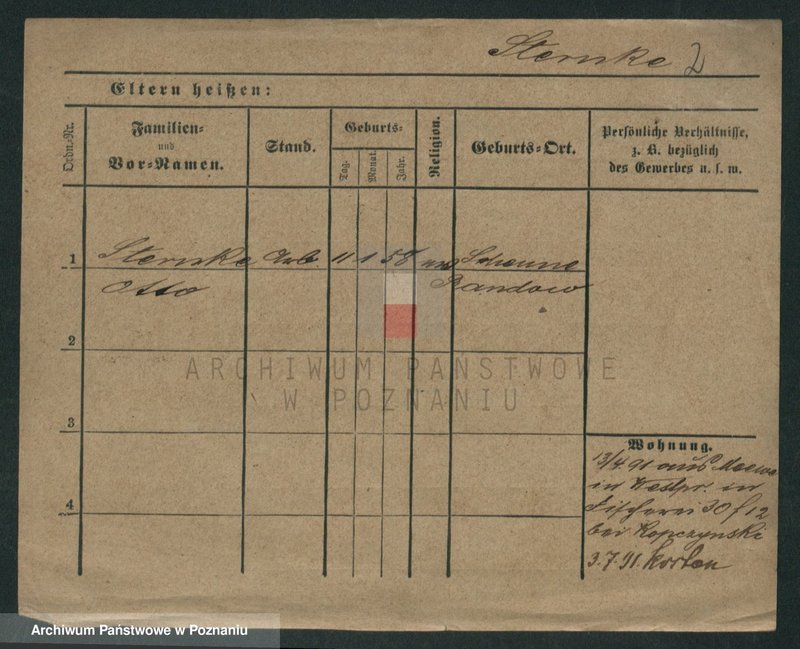 Sternke 2
Eltern heißen:
Ordn.-Nr.
Familien-
und
Vor-Namen.
Stand.
Geburts-
Tag.
Monat.
Jahr.
Religion.
Geburts-Ort.
Persönliche Verhältnisse,
z. B. bezüglich
des Gewerbes u. s. w.
1 Sternke Arb. 11 1 58 Scheune
Otto Randow
2
3
4
Wohnung.
13/4 91 aus
in Westpr. in
Fischerei 30 f 12
bei Kopczynski
3.7.91. Korten
ARCHIWUM PAŃSTWOWE
W POZNANIU
Archiwum Państwowe w Poznaniu